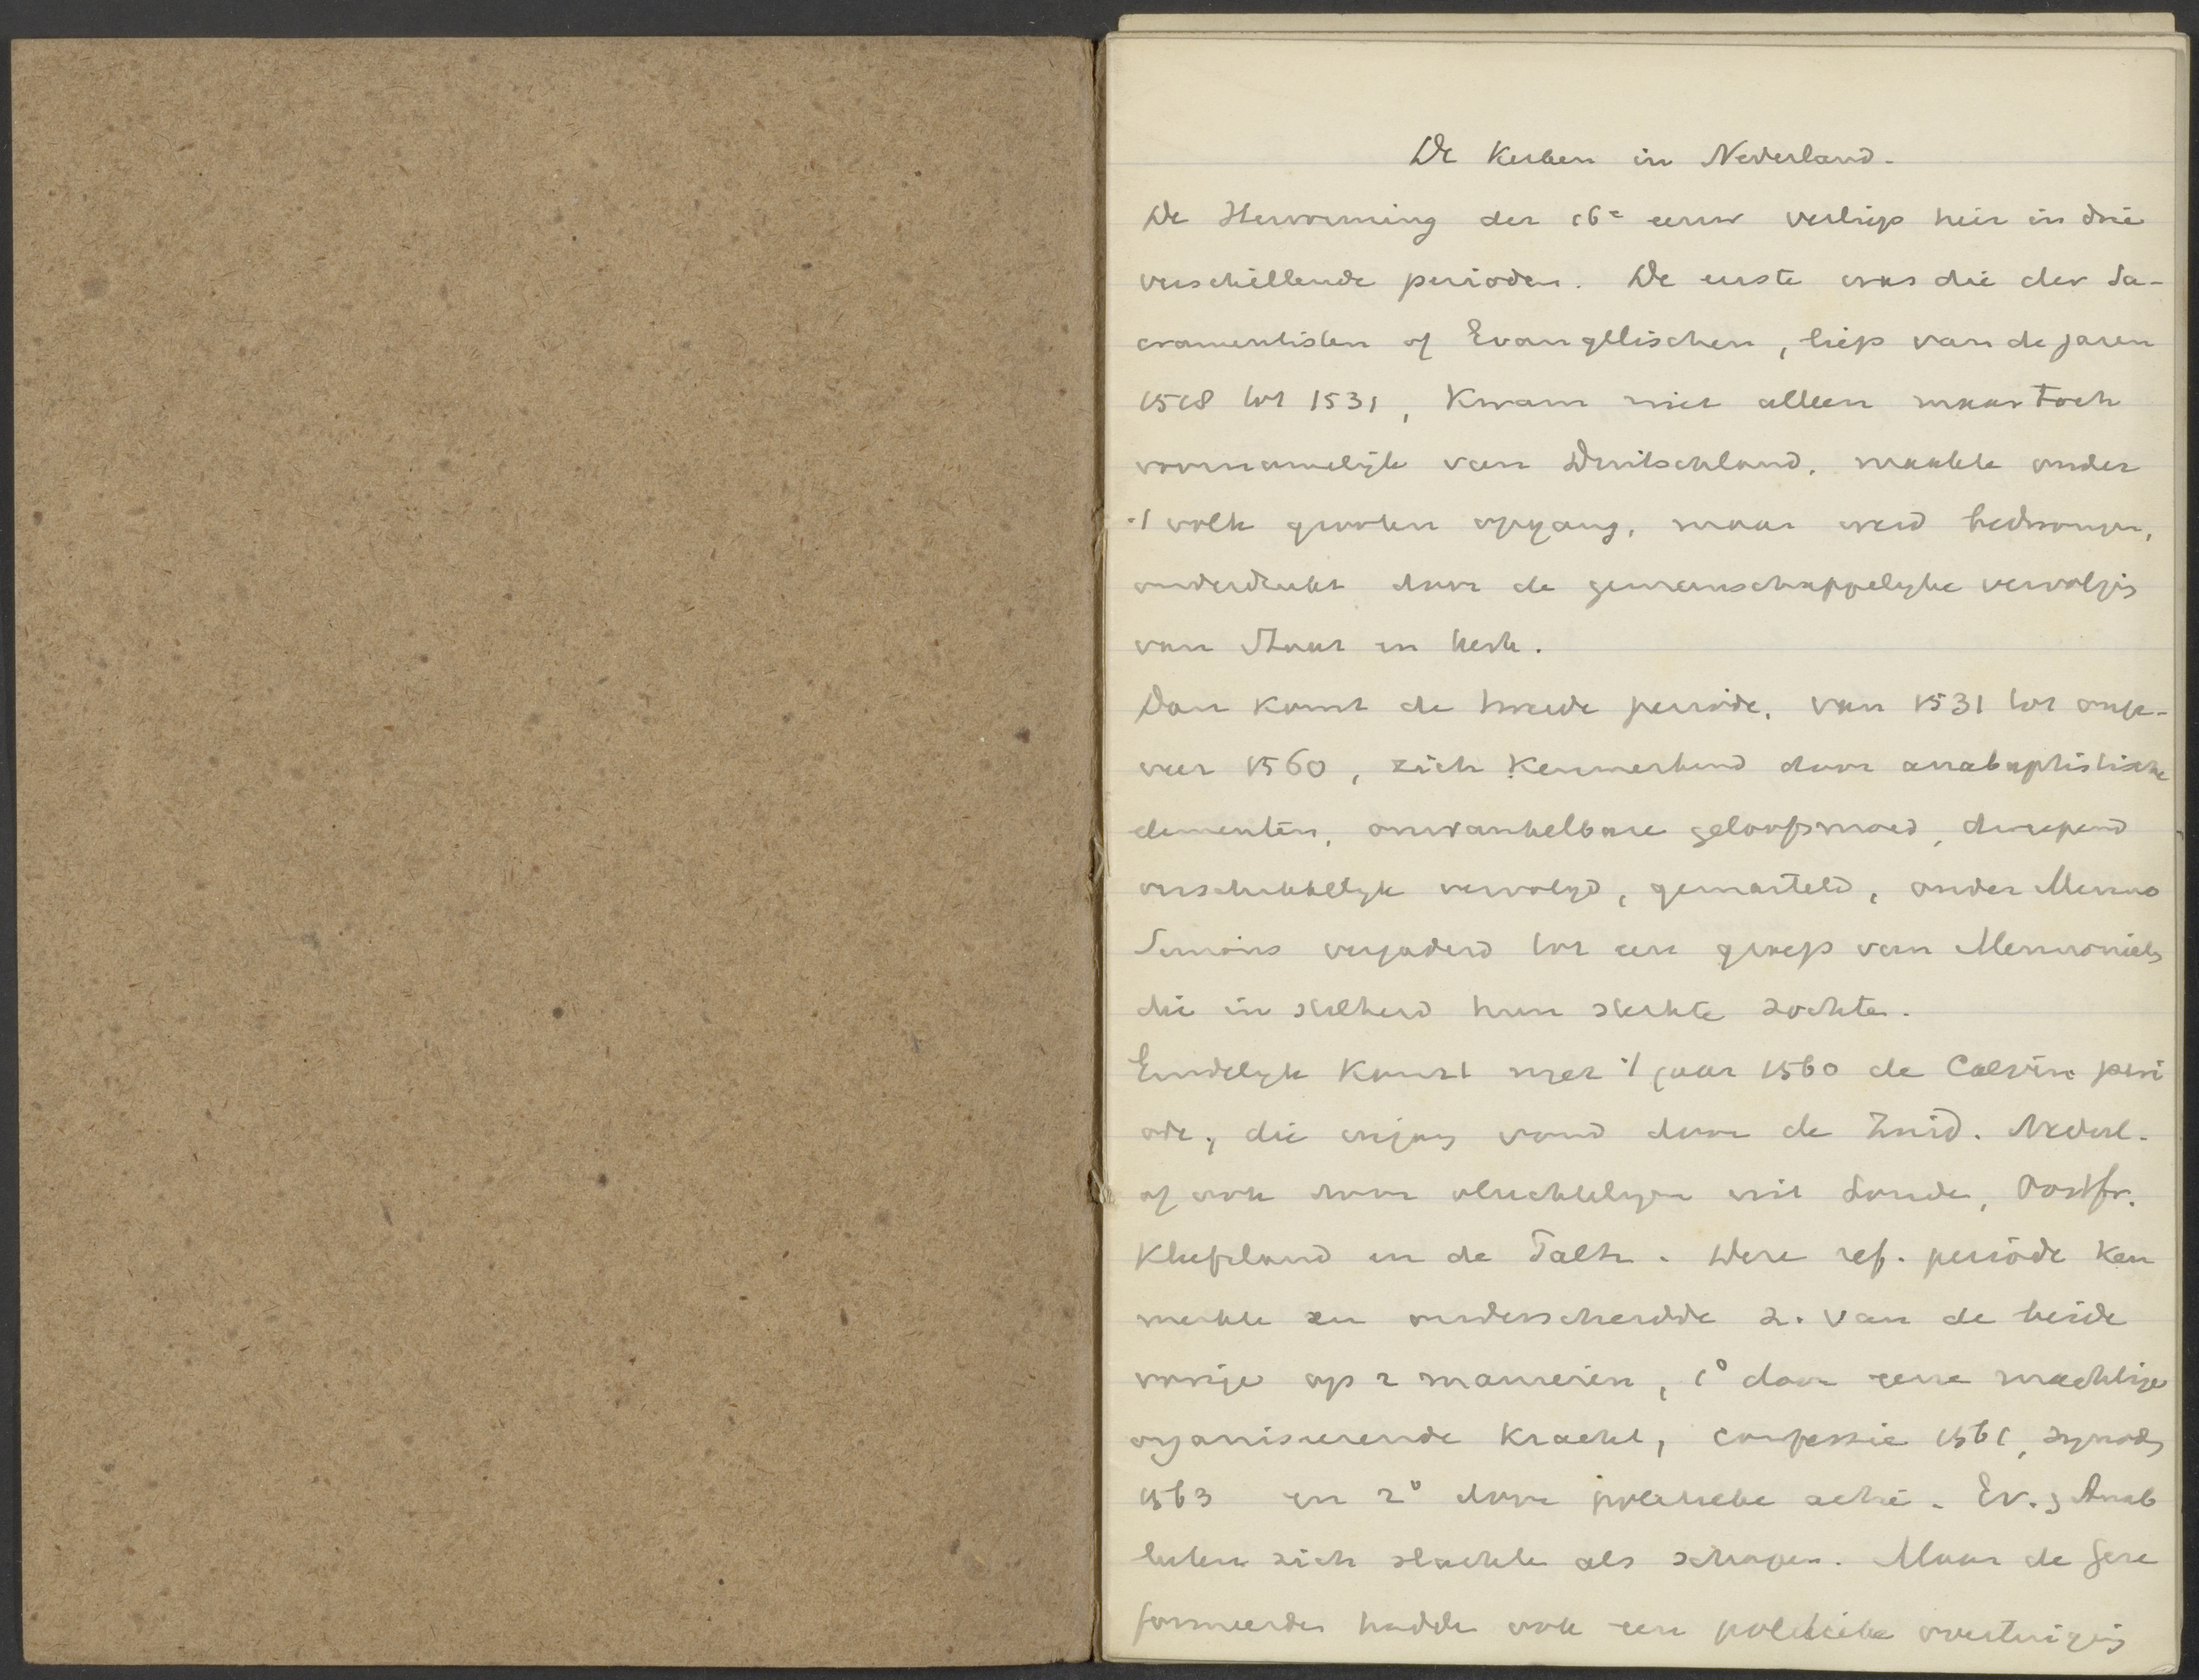 De Kerken in Nederland.
De Hervorming der 16e eeuw verliep hier in drie
verschillende perioden. De eerste was die der Sa-
cramentisten of Evangelischen, liep van de jaren
1518 tot 1531, kwam niet alleen maar toch
voornamelijk van Duitschland, maakte onder
't volk grooten opgang, maar werd bedwongen,
onderdrukt door de gemeenschappelijke vervolgig
van Staat en kerk.
Dan komt de tweede periode, van 1531 tot onge-
veer 1560, zich kenmerkend door anabaptistische
elementen, onwankelbare geloofsmoed, dweepend
verschrikkelijk vervolgd, gemarteld, onder Menno
Simons vergaderd tot een groep van Mennoniets
die in stilheid hun sterkte zochten.
Eindelijk komt met 't jaar 1560 de Calvin. peri
ode, die ingang vond door de Zuid. Nederl.
of ook door vluchtelingen uit Londe, Oostfr.
Kleefsland en de Paltz. Deze ref. periode ken
merkte en onderscheidde z. van de beide
vorige op 2 manieren, 1° door eene machtige
organiseerende kracht, confessie 1561, synods
1563 en 2° door politieke actie. Ev. & Anab
lieten zich slachten als schapen. Maar de Gere
formeerden hadden ook een politieke overtuigig